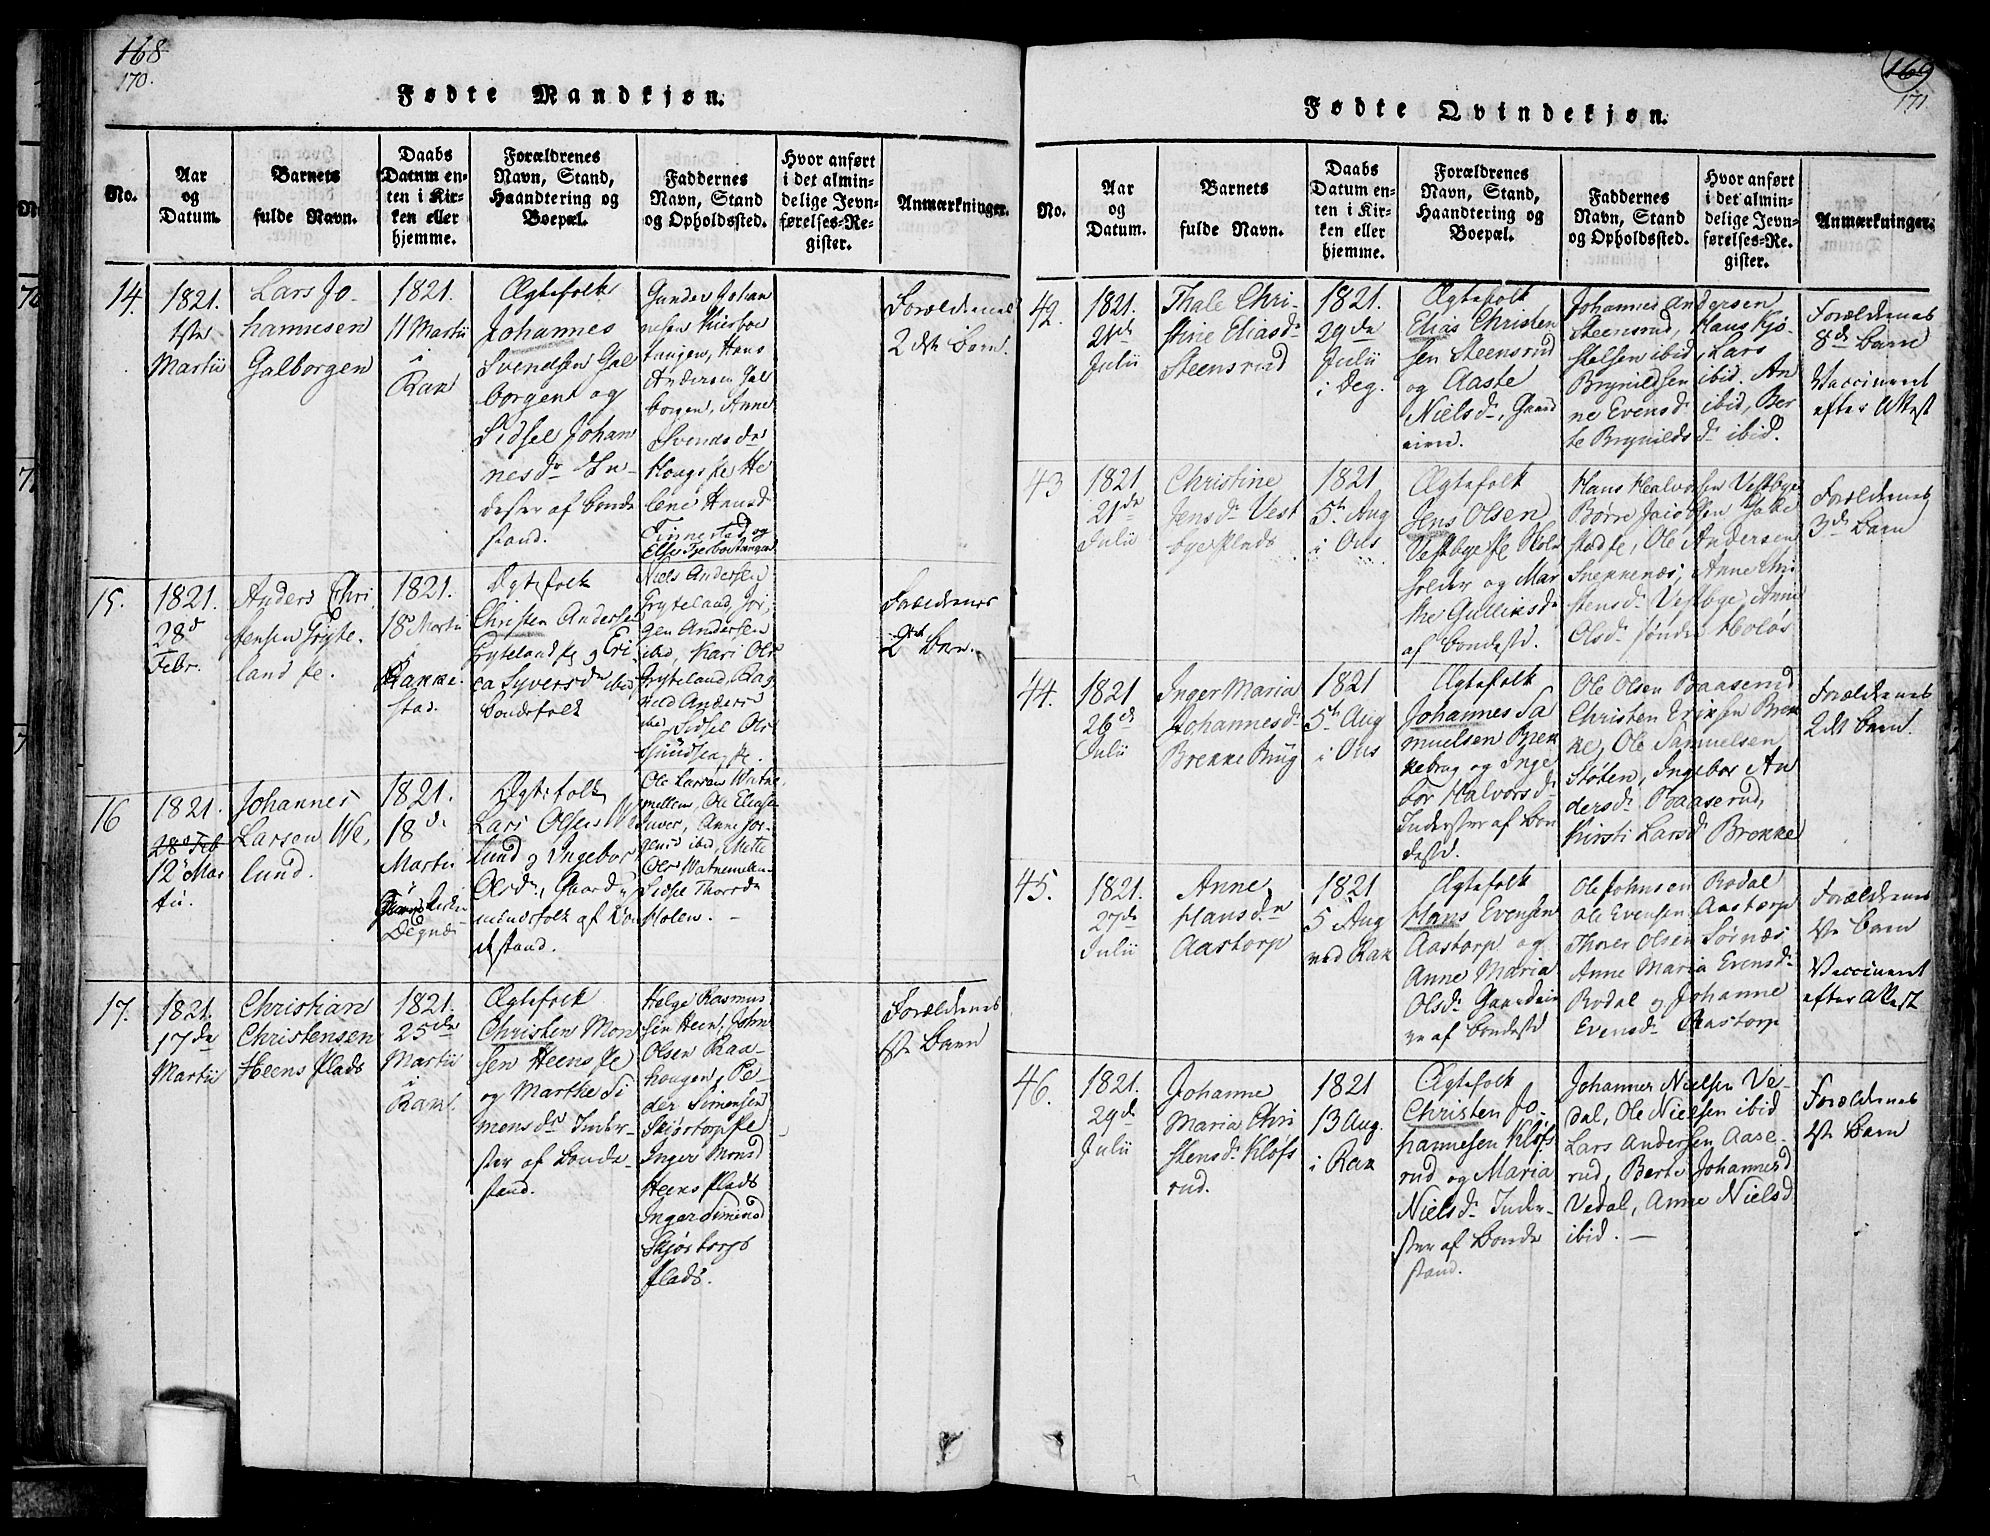 168
170.
Fødte Mandkjøn.
No.
Aar
og
Datum.
Barnets
fulde Navn.
Daabs
Datum en-
ten i Kir-
ken eller
hjemme.
Forældrenes
Navn, Stand,
Haandtering og
Boepæl.
Faddernes
Navn, Stand
og Opholdssted.
Hvor anført
i det almin-
delige Jevn-
førelses-Re-
gister.
Anmærkninger.
14.
1821.
1ste
Martii
Lars Jo-
hannesen
Galborgen
1821.
11 Martii
i
Rak
Ægtefolk
Johannes
Svendsen Gal
borgen og
Sidsel Johan
nesdr
derster af bonde
stand.
Gunder Johan
nesen
tangen, Hans
Andersen Gal
borgen, Anne
Svendsdr
Haugs He
lene Hansd
Finnestad og
Forældrenes
2det Barn.
15.
1821.
28d
Febr.
Anders Chri
stensen Gryte-
land
1821.
18d Martii
i
Rakke-
stad.
Ægtefolk
Christen Anderse
Gryteland og Eri
ca Syversdr ibid
bondefolk
Niels Andersen
Gryteland, Jør
gen Andersen
ibid, Kari Ols
Gryteland, Rag
nild Anders
ibid Sidsel Ols
Forældrenes
2det Barn.
16
1821.
28d Feb
12 Mar
tii.
Johannes
Larsen We-
lund.
1821.
18de
Martii
Degnæs
Ægtefolk
Lars Olsen We
lund og Ingebor
Olsdr, Gaard
mandsfolk af Bon
destand.
Ole Larsen Watne
mellem, Ole Eliasen
Juver, Anne Jør-
gensd ibid, Mette
Ols Watnemellem
Sidsel Thorsdr
Holen. -
17.
1821.
17de
Martii
Christian
Christensen
Heens plads
1821.
25de
Martii
i
Rak.
Ægtefolk
Christen Mon
sen Heens Pe
og Marthe Si
monsdr Inder-
ster af Bonde-
stand.
Helge Rasmus
sen Heen, John
Olsen Raa-
hougen, Pe-
der Simensen
Skjørtorp Pe
Inger Monsd
Heens plads
Inger Simensd
Skjørtorps
plads.
Forældrenes
1ste Barn
169
171
Fødte Qvindekjøn.
No.
Aar
og
Datum.
Barnets
fulde Navn.
Daabs
Datum en-
ten i Kir-
ken eller
hjemme.
Forældrenes
Navn, Stand,
Haandtering og
Boepæl.
Faddernes
Navn, Stand
og Opholdssted.
Hvor anført
i det almin-
delige Jevn-
førelses-Re-
gister.
Anmærkninger.
42.
1821.
21de
Julii
Thale Chri-
stine Eliasdr
Steensrud
1821.
29de
Julii
i Deg.
Ægtefolk
Elias Christen
sen Steensrud
og Aaste
Nielsdr, Gaard
eiere.
Johannes Andersen
Steensrud, Hans Kjø-
stelsen ibid Lars
Brynildsen ibid. An
ne Evensdr ibid, Ber
te Brynilds dr ibid.
Forældrenes
8de Barn
Vaccineret
efter Attest
43
1821
21de
Julii
Christine
Jensdr Vest
bye plads
1821.
5te Aug
i Ous
Ægtefolk
Jens Olsen
Vestbye Pe
holder og Mar
the Gulliksdr
af bondestd.
Hans Halvorsen Vestbye
Børre Jacobsen
stedte, Ole Andersen
Snekkenæs, Anne Chri
stensdr Vestbye Anne
Olsdr søndre Holøs
Forældrenes
3de Barn
44.
1821
26de
Julii
Inger Maria
Johannesdr
Brekke Brug
1821
5te Aug
i Ous
Ægtefolk
Johannes Sa
muelsen Brek
kebrug og Inge
bor Halvorsdr
Inderster af Bon
destd.
Ole Olsen Baaserud
Christen Eriksen Brek
ke, Ole Samuelsen
Støten, Ingebor An
dersdr Baaserud,
Kirsti Larsdr Brekke
Forældrenes
2det Barn.
45.
1821.
27de
Julii
Anne
Hansdr
Aastorp
1821
5 Aug
ved Rak
Ægtefolk
Hans Evensen
Aastorp og
Anne Maria
Olsdr Gaardeie
re af bondestd
Ole Johnsen Rodal
Ole Evensen Aastorp
Thorer Olsen Sørnæs
Anne Maria Evensdr
Rodal og Johanne
Evensdr Aastorp
Forældrenes
1ste Barn
Vaccineret
efter Attest
46.
1821.
29de
Julii
Johanne
Maria Chri
stensdr Kløfs
rud.
1821
13 Aug.
i Rak
Ægtefolk
Christen Jo-
hannesen Kløfs
rud og Maria
Nielsdr Inder-
ster af Bonde
stand.
Johannes Nielsen Ve-
dal, Ole Nielsen ibid
Lars Andersen Aase-
rud, Berte Johannesd
Vedal, Anne Nielsd
ibid. -
Forældrenes
1ste Barn